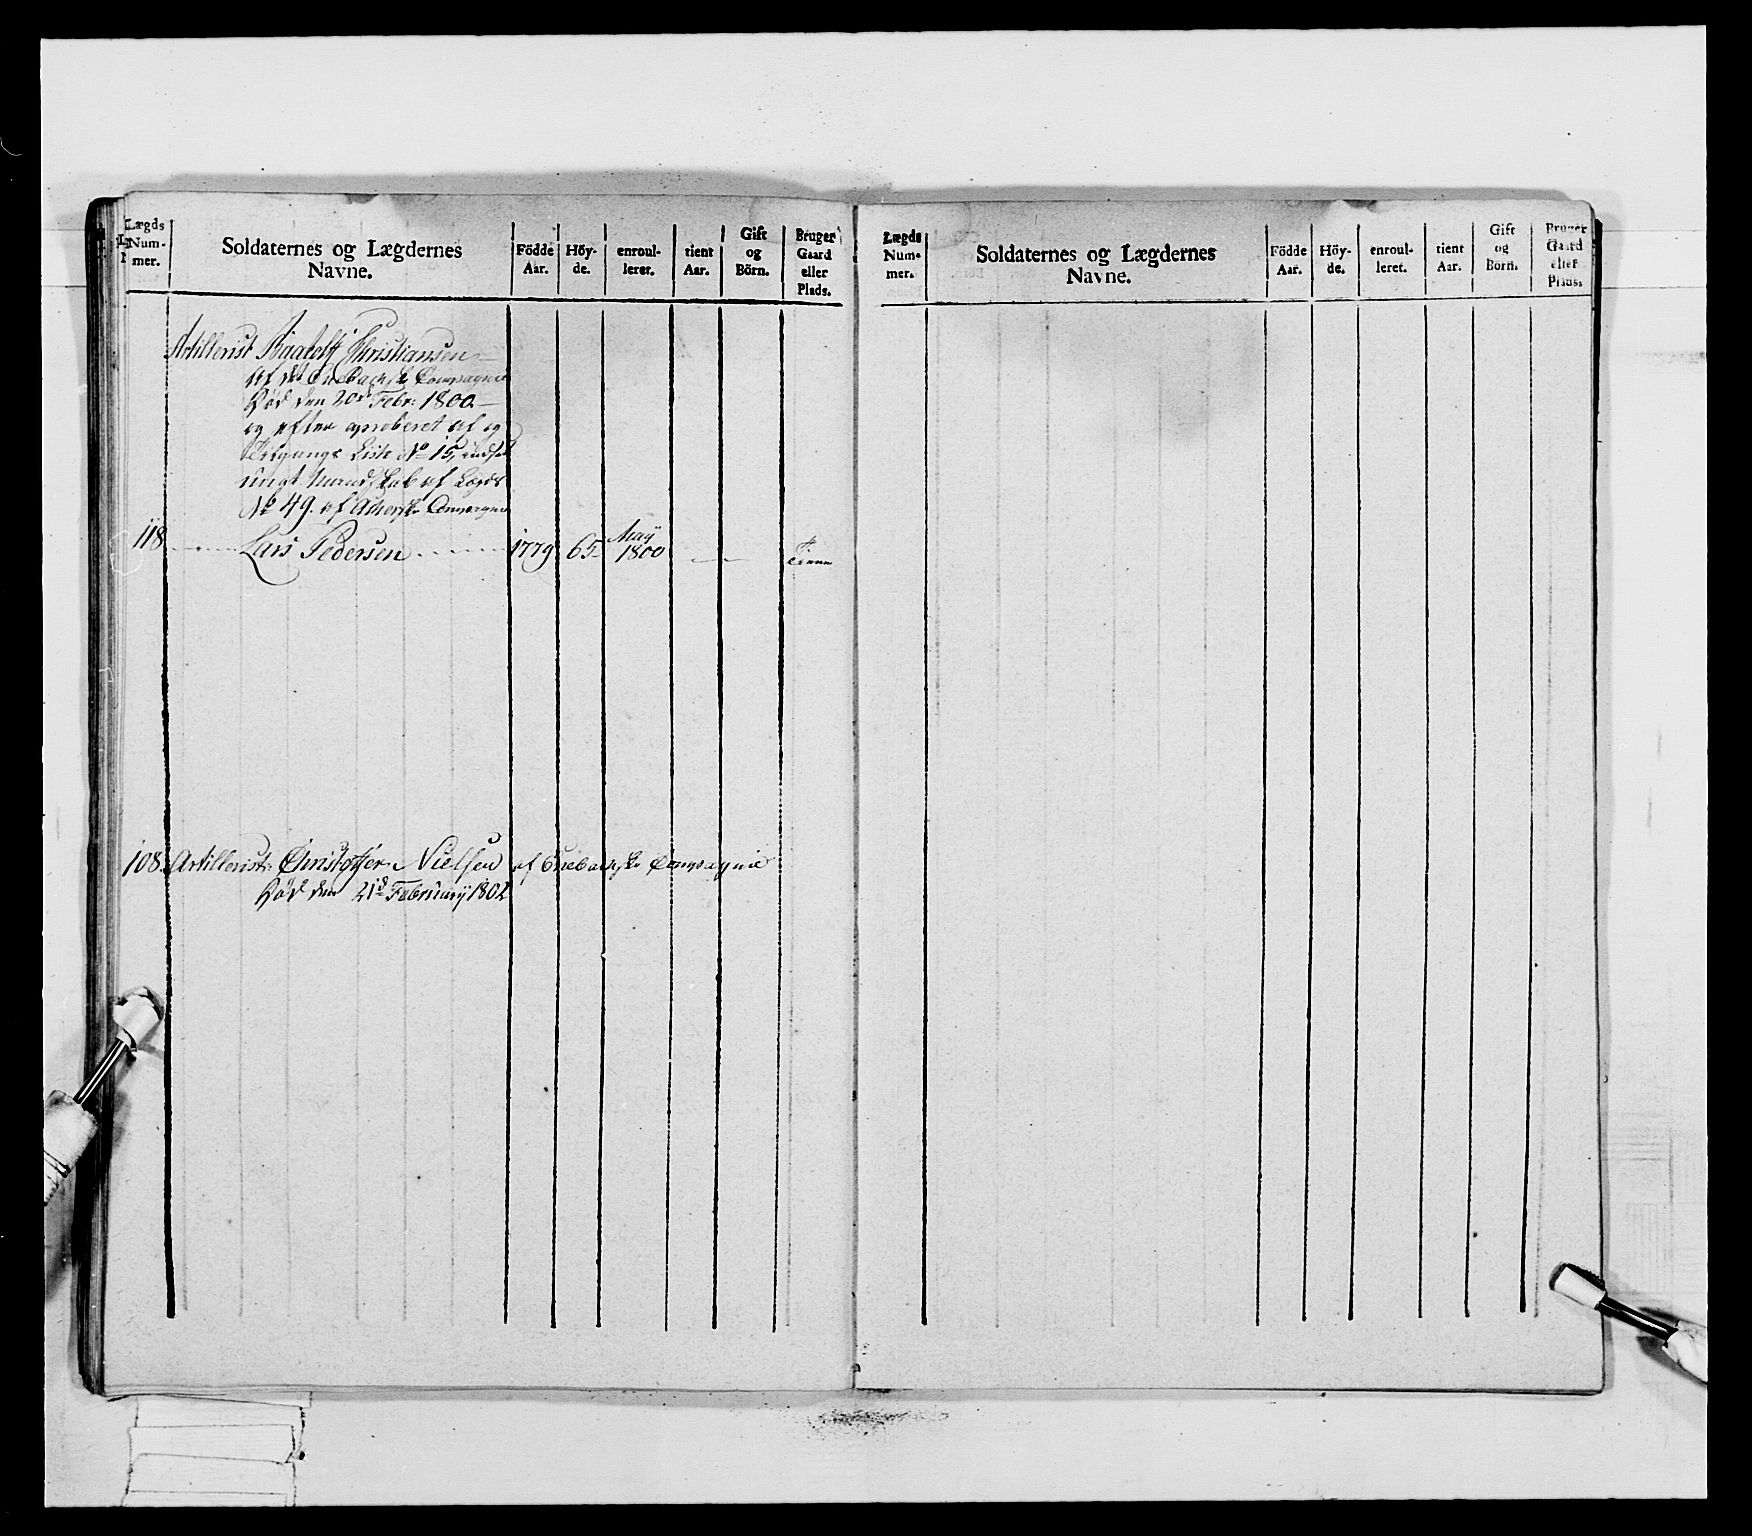 Lægds Num- mer.
Soldaternes og Lægdernes Navne.
Födde Aar.
Höy- de.
enroul- leret.
tient Aar.
Gift og Börn.
Bruger Gaard eller Plads.
Artillerist Christiansen
af det Enebachske Compagnie
Død den 20d Febr: 1800
og efter aproberet af og
Tilgangs Liste No 15, indsat
ungt Mandskab af Lægds
No 49. af Compagnie
118 Lars Pedersen 1779 65 Maÿ 1800
108. Artillerist Christoffer Nielsen af Enebachske Compagnie
Død den 21d Februarÿ 1802
Lægds Num- mer.
Soldaternes og Lægdernes Navne.
Födde Aar.
Höy- de.
enroul- leret.
tient Aar.
Gift og Börn.
Bruger Gaard eller Plads.